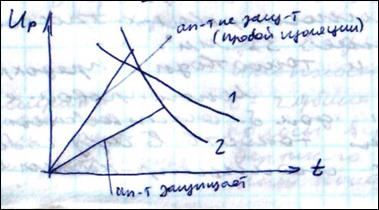 Uр
ап-т не защ-т
(пробой изоляции)
1
2
t
ап-т защищает